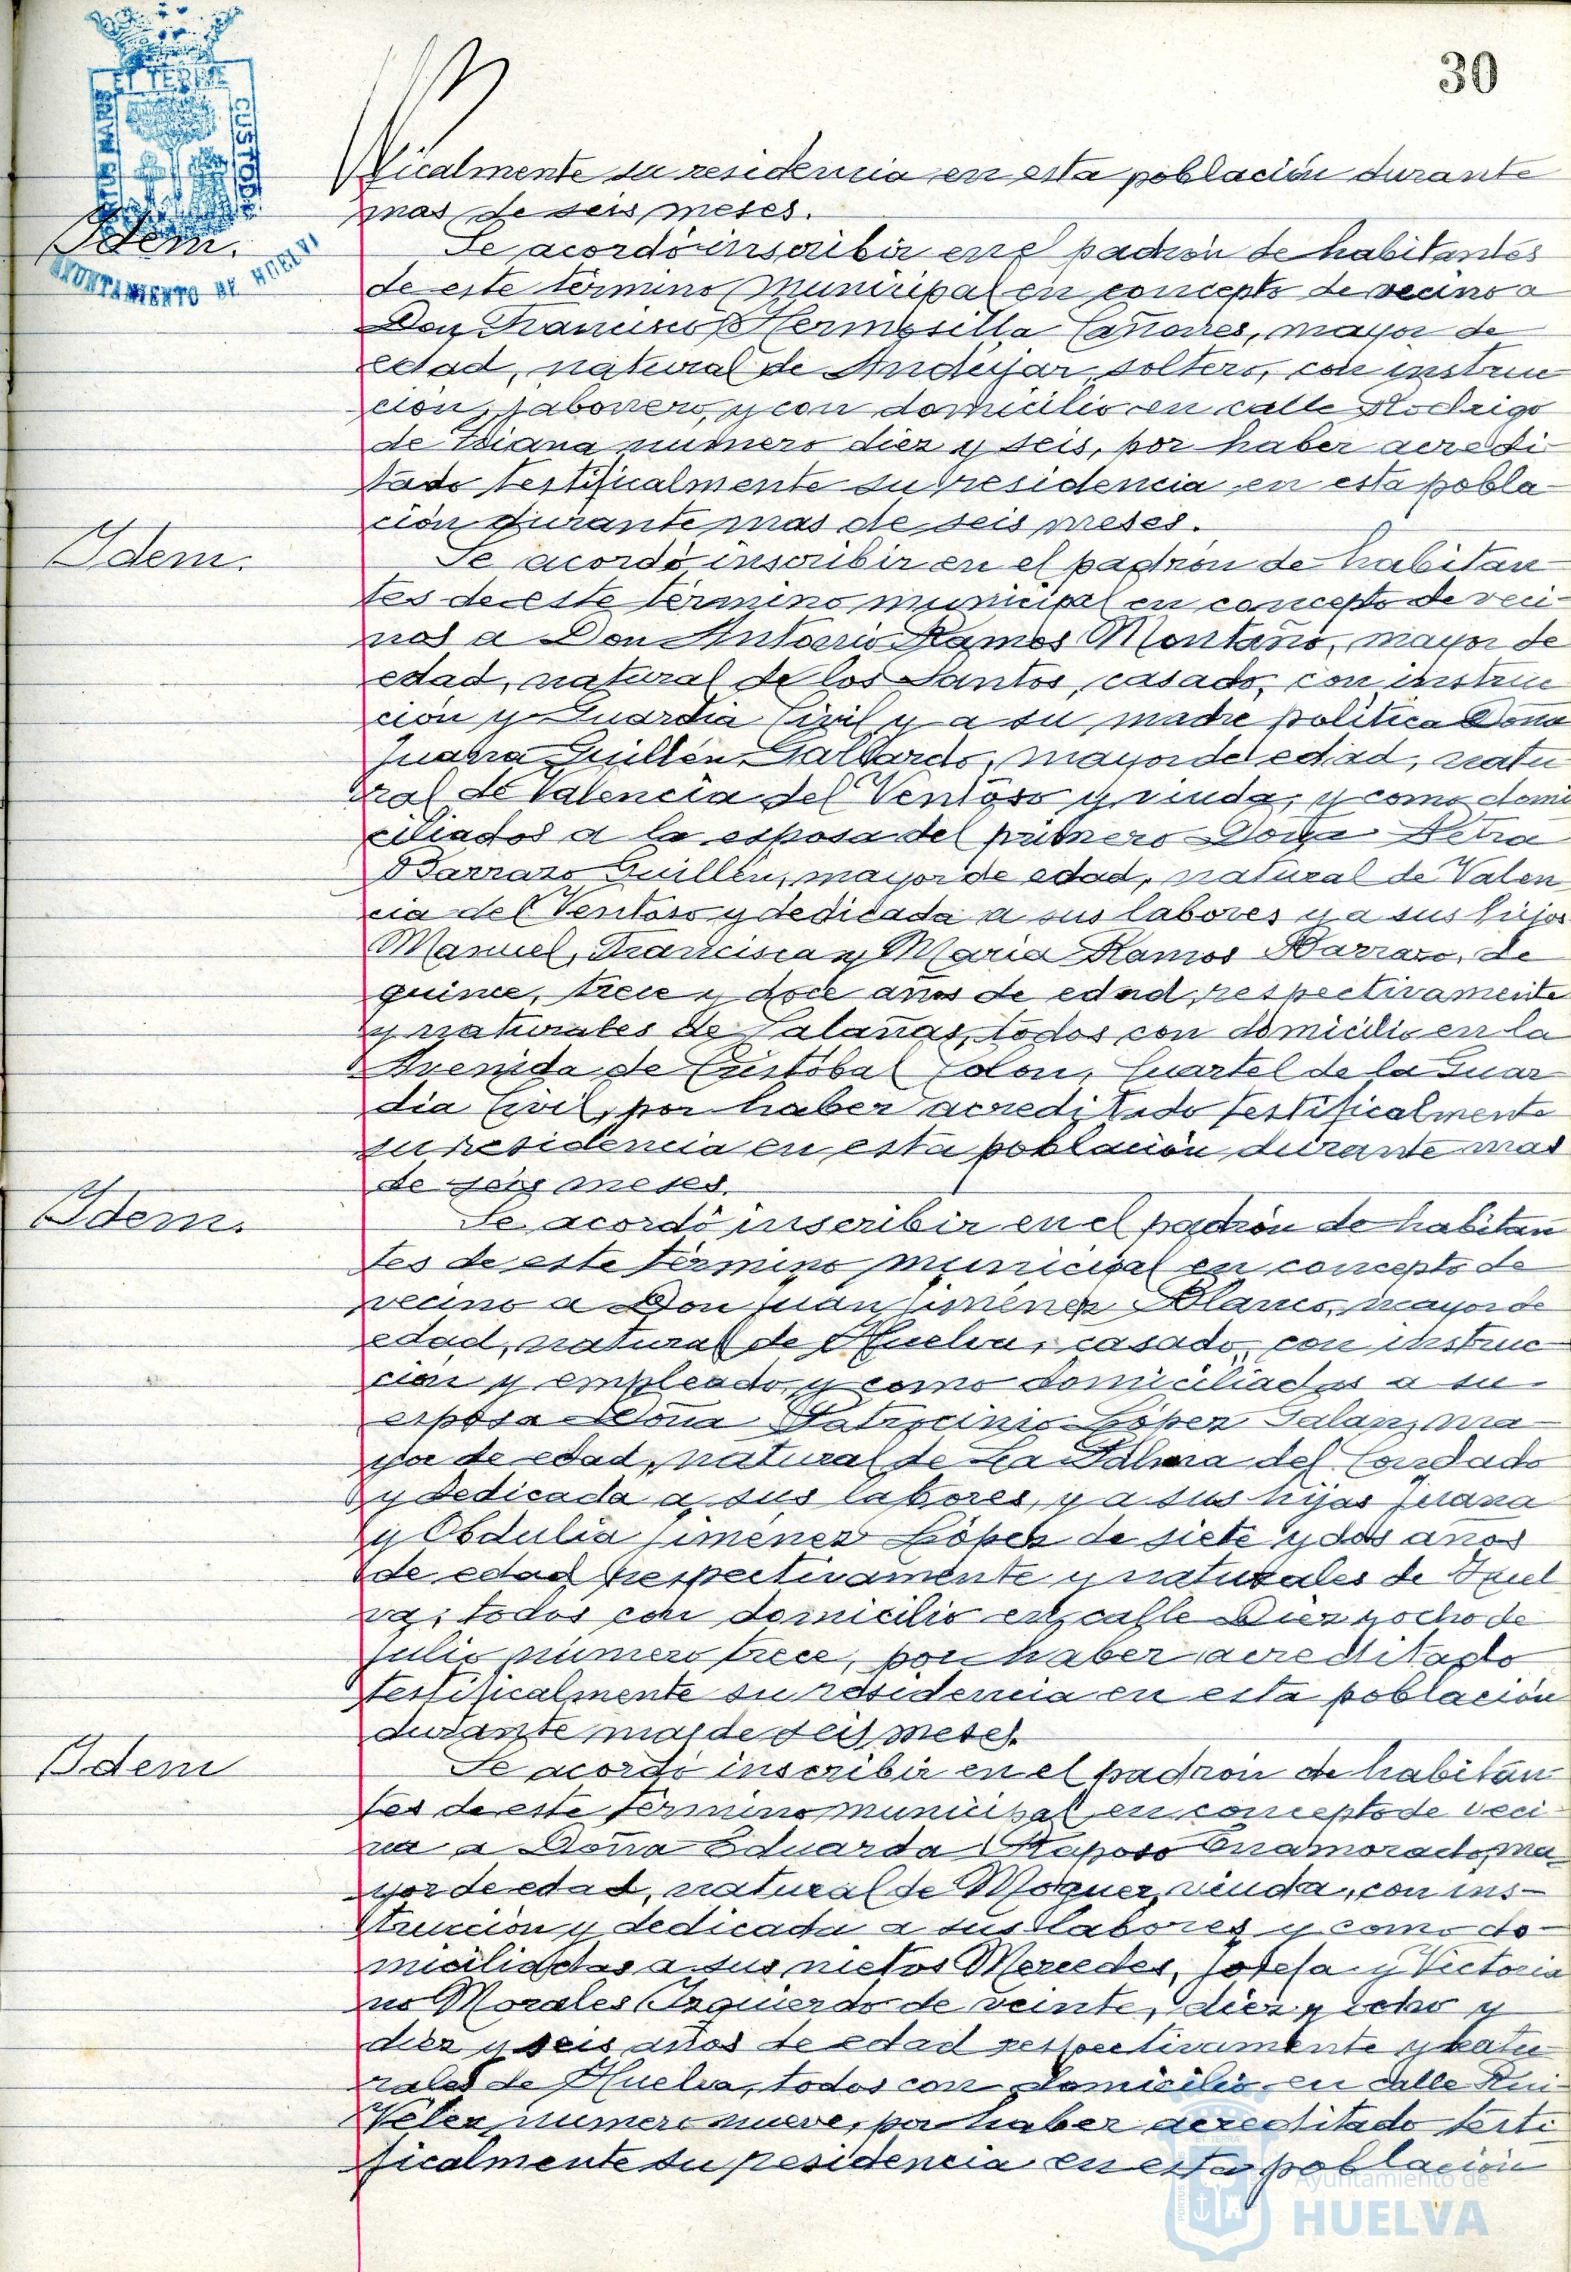 30
ET TERRE
CUSTODIA
AYUNTAMIENTO DE HUELVA
ficalmente su residencia en esta población durante
mas de seis meses.
Idem.
Se acordó inscribir en el padrón de habitantes
de este término Municipal en concepto de vecino a
Don Francisco Hermosilla Cañones, mayor de
edad, natural de Andújar, soltero, con instruc
ción, jabonero, y con domicilio en calle Rodrigo
de Triana numero diez y seis, por haber acredi-
tado testificalmente su residencia en esta pobla-
ción durante mas de seis meses.
Idem.
Se acordó inscribir en el padrón de habitan
tes de este término municipal en concepto de veci-
nos a Don Antonio Ramos Montaño, mayor de
edad, natural de los Santos, casado, con instruc
ción y Guardia Civil y a su madre política Doña
Juana Guillén Gallardo, mayor de edad, natu
ral de Valencia del Ventoso y viuda, y como domi
ciliados a la esposa del primero Doña Petra
Barraso Guillén, mayor de edad, natural de Valen
cia del Ventoso y dedicada a sus labores y a sus hijos
Manuel, Francisca y Maria Ramos Barraso, de
quince, trece y doce años de edad, respectivamente
y naturales de Calañas, todos con domicilio en la
Avenida de Cristóbal Colon, Cuartel de la Guar
dia Civil, por haber acreditado testificalmente
su residencia en esta población durante mas
de seis meses.
Idem.
Se acordó inscribir en el padrón de habitan
tes de este término municipal en concepto de
vecino a Don Juan Jiménez Blanco, mayor de
edad, natural de Huelva, casado, con instruc-
ción y empleado, y como domiciliados a su
esposa Doña Patrocinio López Galan, ma-
yor de edad, natural de La Palma del Condado
y dedicada a sus labores, y a sus hijas Juana
y Obdulia Jiménez López de siete y dos años
de edad respectivamente y naturales de Huel
va, todos con domicilio en calle Diez y ocho de
Julio número trece, por haber acreditado
testificalmente su residencia en esta población
durante mas de seis meses.
Idem
Se acordó inscribir en el padrón de habitan
tes de este término municipal en concepto de veci-
na a Doña Eduarda Raposo Enamorado, ma-
yor de edad, natural de Moguer, viuda, con ins-
trucción y dedicada a sus labores y como do-
miciliados a sus nietos Mercedes, Josefa y Victoria
no Morales Izquierdo de veinte, diez y ocho y
diez y seis años de edad respectivamente y natu
rales de Huelva, todos con domicilio en calle Rui-
Vélez, numero nueve, por haber acreditado testi
ficalmente su residencia en esta población
Ayuntamiento de
HUELVA